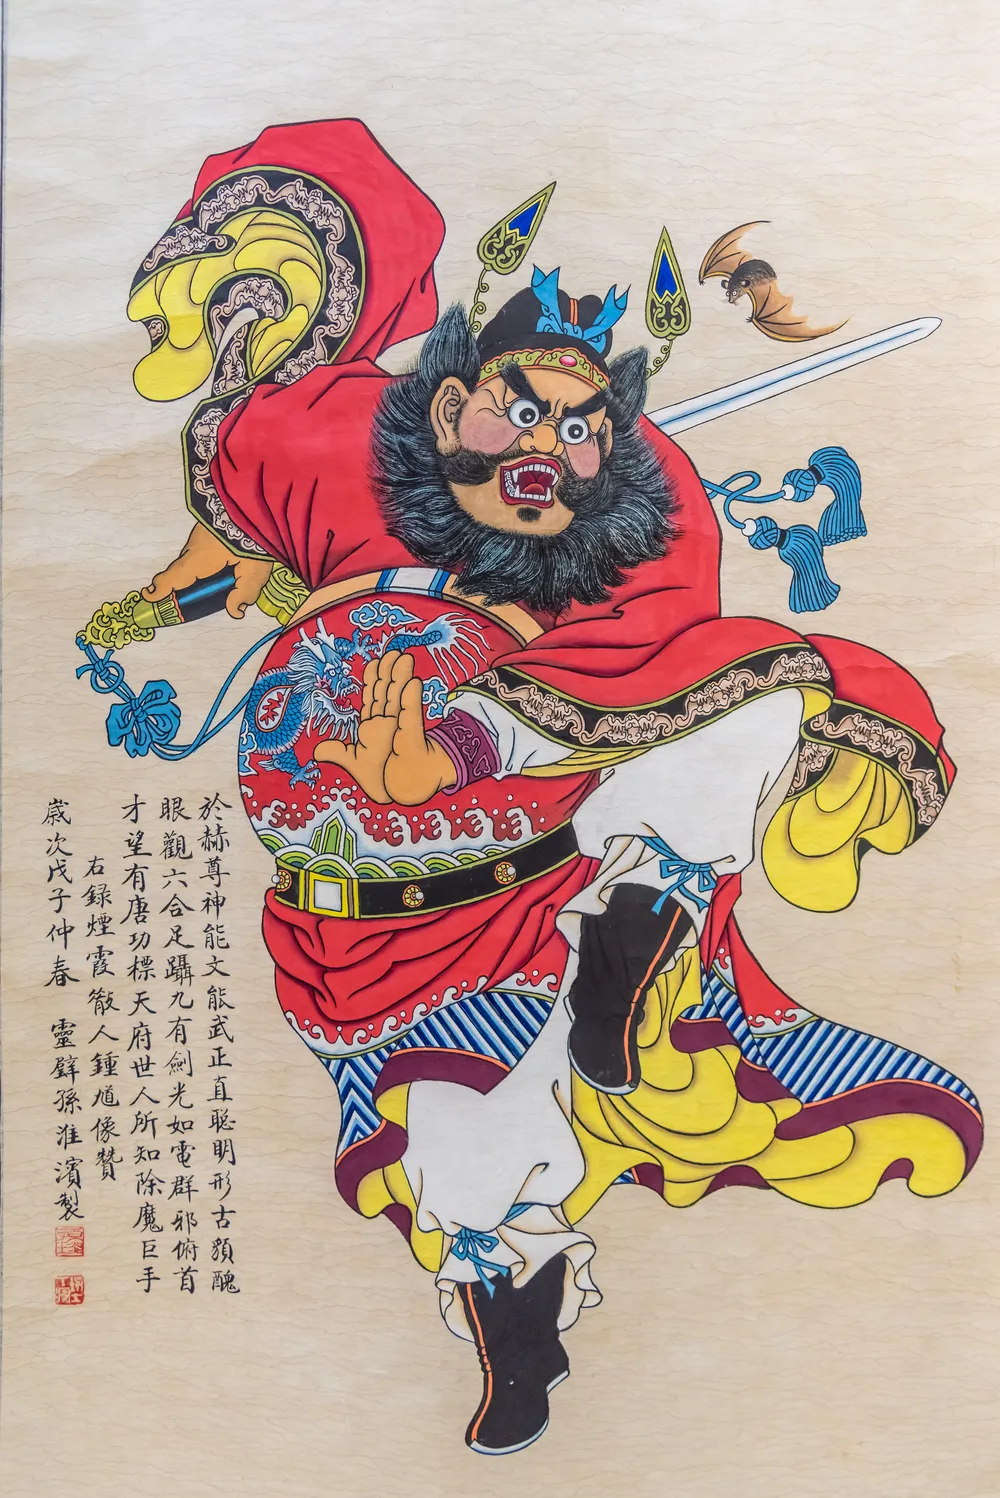 於赫尊神能文能武正直聪明形古貌醜
眼觀六合足躡九有劍光如電群邪俯首
才望有唐功標天府世人所知除魔巨手
右録煙霞散人鍾馗像贊
嵗次戊子仲春 靈璧孫淮濱製